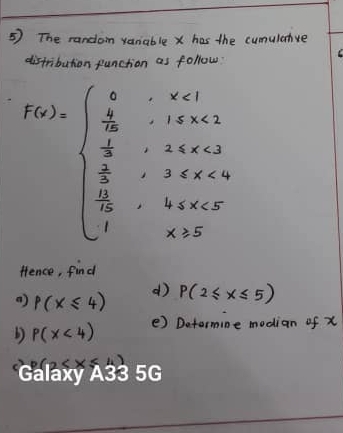 5) The random variable X has the cumulative
distribution function as follow:
F(x) = { 0 , x < 1
4/15 , 1 ≤ x < 2
1/3 , 2 ≤ x < 3
2/3 , 3 ≤ x < 4
13/15 , 4 ≤ x < 5
1 x ≥ 5
Hence, find
a) P(X ≤ 4)
b) P(X < 4)
d) P(2 ≤ X ≤ 5)
e) Determine median of X
Galaxy A33 5G